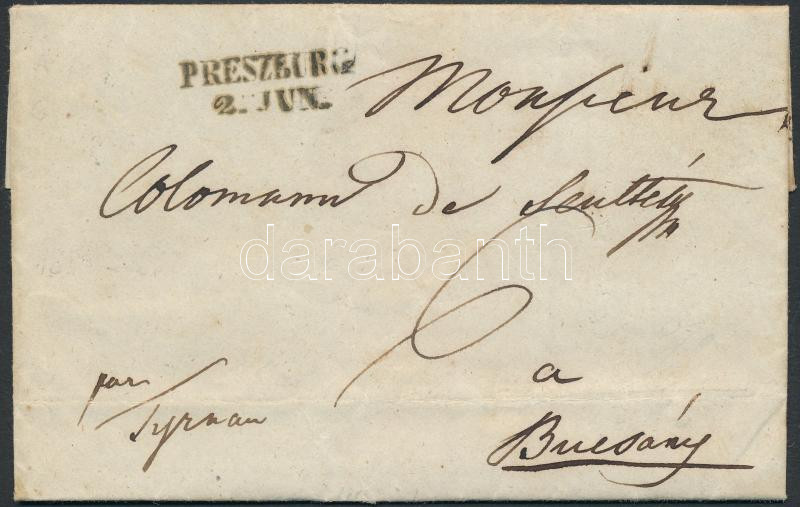 PRESZBURG
2. JUN.
Monsieur
Colomann de
6
darabanth
a
par
Tyrnau
Bucsány